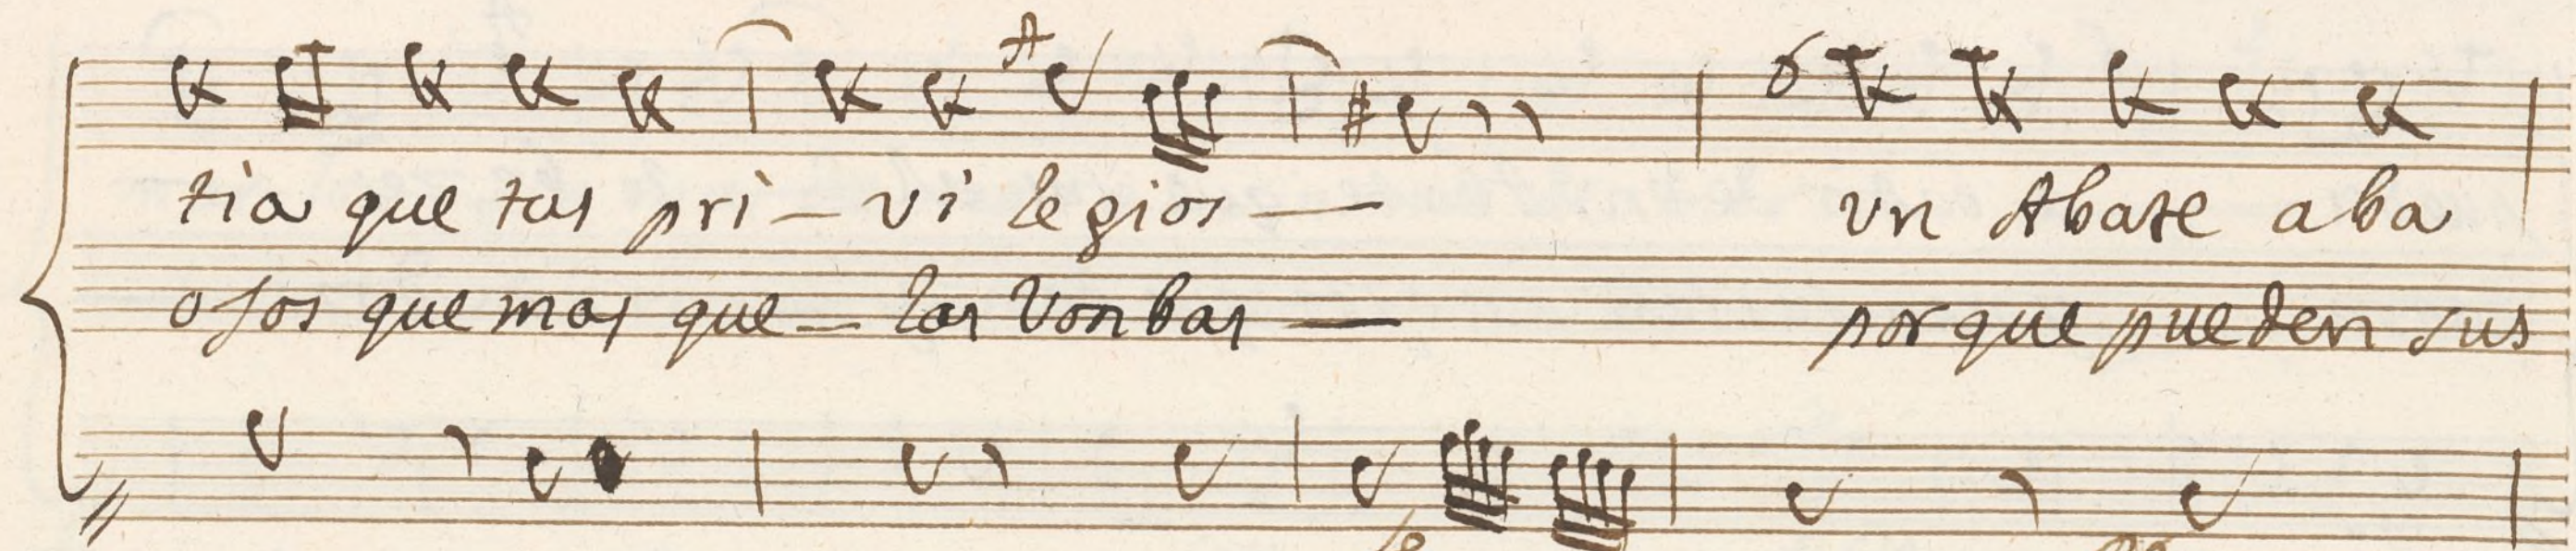 tia que tas pri - vi legios —— un Abate aba
ojos que mas que - las Vonbas —— porque pueden sus